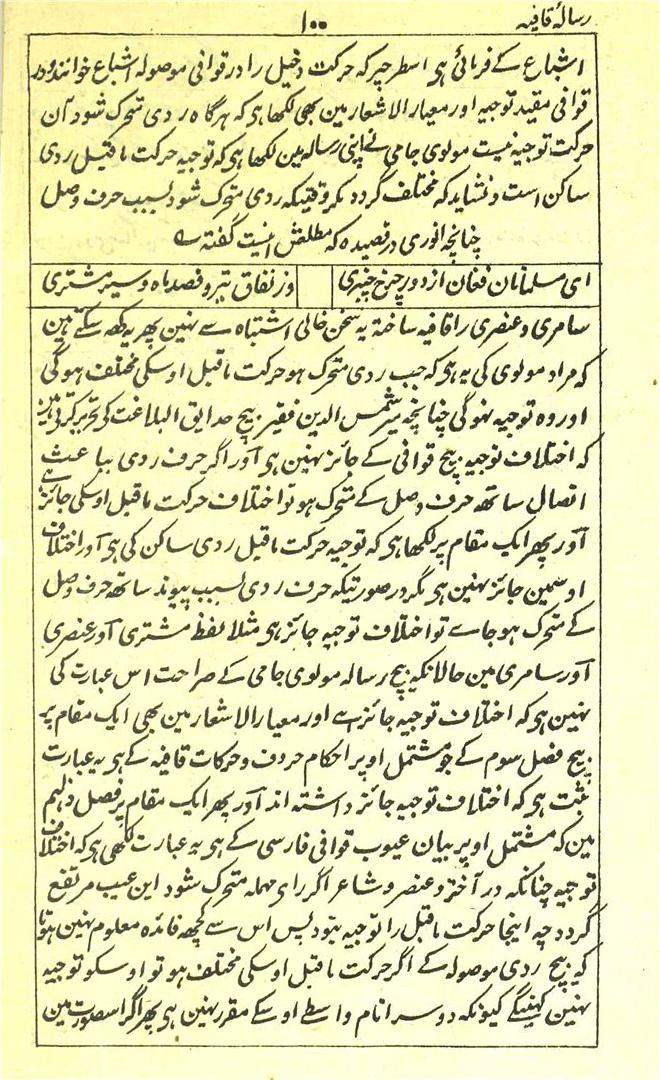 رسالۂ قافیہ
۱۰۰
اشباع کے فرمائی ہی اسطرحپر کہ حرکت دخیل را در قوافی موصولہ اشباع خوانند و در
قوافی مقید توجیہ اور معیار الاشعار مین بھی لکھا ہی کہ ہرگاہ ردی متحرک شود آن
حرکت توجیہ نیست مولوی جامی نے اپنی رسالہ مین لکھا ہی کہ توجیہ حرکت ماقبل ردی
ساکن است و نشاید کہ مختلف گردد مگر وقتیکہ ردی متحرک شود بسبب حرف وصل
چنانچہ انوری در قصیدہ کہ مطلعش اینست گفتہ
ای مسلمانان فغان از دور چرخ چنبری
وز نفاق تیر و قصد ماہ و سیر مشتری
سامری و عنصری را قافیہ ساختہ یہ سخن خالی اشتباہ سے نہین پھر یہ کہہ سکتے ہین
کہ مراد مولوی کی یہ ہی کہ جب ردی متحرک ہو حرکت ماقبل اوسکی مختلف ہوگی
اور وہ توجیہ نہوگی چنانچہ میر شمس الدین فقیر بیچ حدایق البلاغت کی تحریر کرتے ہین
کہ اختلاف توجیہ بیچ قوافی کے جائز نہین ہی اور اگر حرف ردی بباعث
اتصال ساتھ حرف وصل کے متحرک ہو تو اختلاف حرکت ماقبل اوسکی جائز ہے
اور پھر ایک مقام پر لکھا ہی کہ توجیہ حرکت ماقبل ردی ساکن کی ہی اور اختلاف
اوسمین جائز نہین ہی مگر در صورتیکہ حرف ردی بسبب پیوند ساتھ حرف وصل
کے متحرک ہو جاے تو اختلاف توجیہ جائز ہی مثلا لفظ مشتری اور عنصری
اور سامری مین حالانکہ بیچ رسالہ مولوی جامی کے صراحت اس عبارت کی
نہین ہی کہ اختلاف توجیہ جائز ہے اور معیار الاشعار مین بھی ایک مقام پر
بیچ فصل سوم کے جو مشتمل اوپر احکام حروف و حرکات قافیہ کے ہی یہ عبارت
ثبت ہی کہ اختلاف توجیہ جائز داشتہ اند اور پھر ایک مقام پر فصل دہم
مین کہ مشتمل اوپر بیان عیوب قوافی فارسی کے ہی یہ عبارت لکھی ہی کہ اختلاف
توجیہ چنانکہ در آختر و عنصر و شاعر اگر رای مہملہ متحرک شود این عیب مرتفع
گردد چہ اینجا حرکت ماقبل را توجیہ نبود پس اس سے کچھ فائدہ معلوم نہین ہوتا
کہ بیچ ردی موصولہ کے اگر حرکت ماقبل اوسکی مختلف ہو تو اوسکو توجیہ
نہین کہینگے کیونکہ دوسرا نام واسطے اوسکے مقرر نہین ہی پھر اگر اسصورت مین